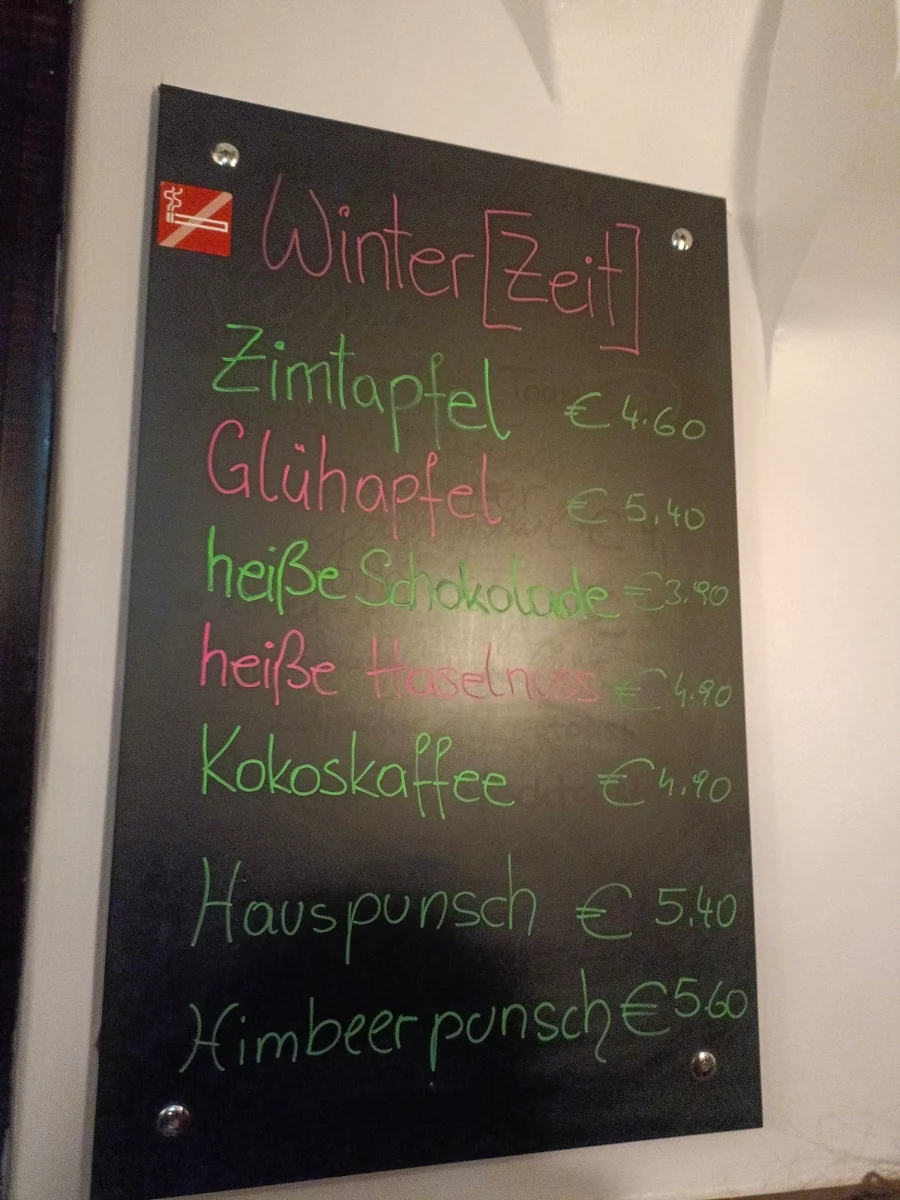 Winter [Zeit]
Zimtapfel € 4.60
Glühapfel € 5.40
heiße Schokolade € 3.90
heiße Haselnuss € 4.90
Kokoskaffee € 4.90
Hauspunsch € 5.40
Himbeerpunsch € 5.60